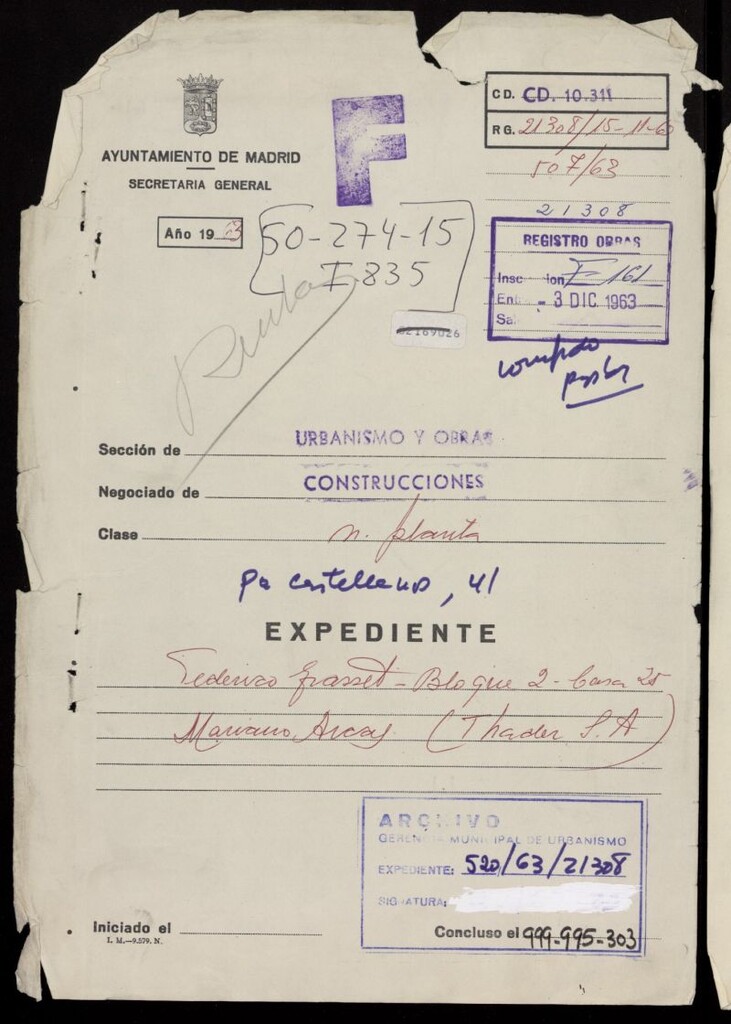 CD. CD. 10.311
RG. 21308/15-11-60
507/63
21308
F
AYUNTAMIENTO DE MADRID
SECRETARIA GENERAL
Año 19 3
50-274-15
I 835
REGISTRO OBRAS
Insc ion F-161
Ent - 3 DIC. 1963
Sa.
02169026
Sección de URBANISMO Y OBRAS
Negociado de CONSTRUCCIONES
Clase n. planta
Pa castellano, 41
EXPEDIENTE
Federico Grasset - Bloque 2 - Casa 25
Mariano Arcas (Thader S.A)
ARCHIVO
GERENCIA MUNICIPAL DE URBANISMO
EXPEDIENTE: 520/63/21308
SIGNATURA:
Iniciado el
I. M.—9.579. N.
Concluso el 999-995-303